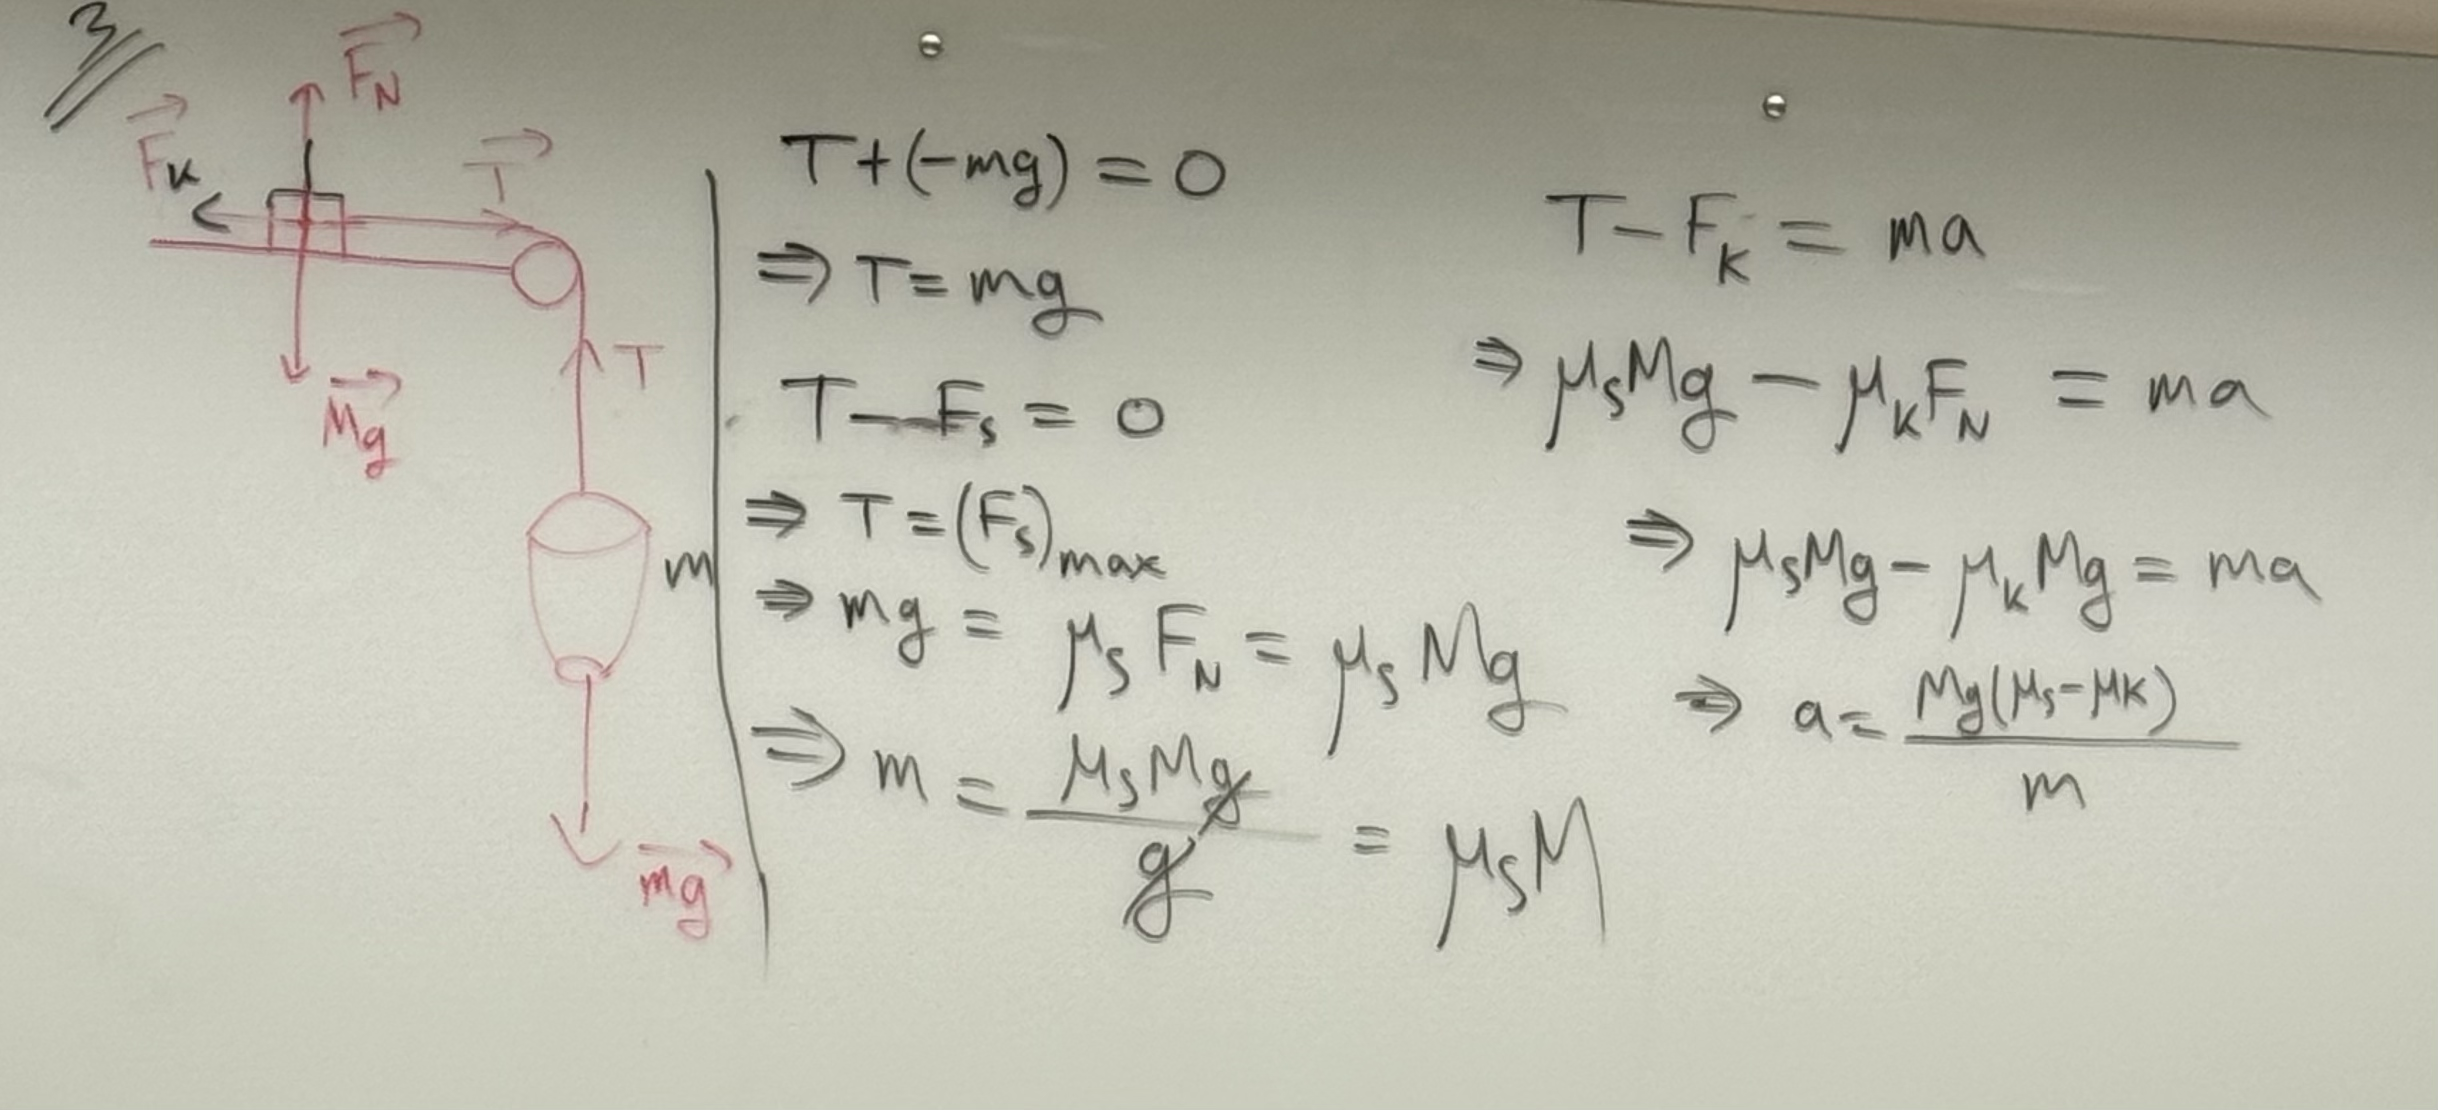 3
F_N
F_K
T
Mg
T
m
mg
T + (-mg) = 0
⇒ T = mg
T - F_s = 0
⇒ T = (F_s)_max
⇒ mg = μ_s F_N = μ_s Mg
⇒ m = μ_s Mg / g = μ_s M
T - F_K = ma
⇒ μ_s Mg - μ_K F_N = ma
⇒ μ_s Mg - μ_K Mg = ma
⇒ a = Mg(μ_s - μ_K) / m